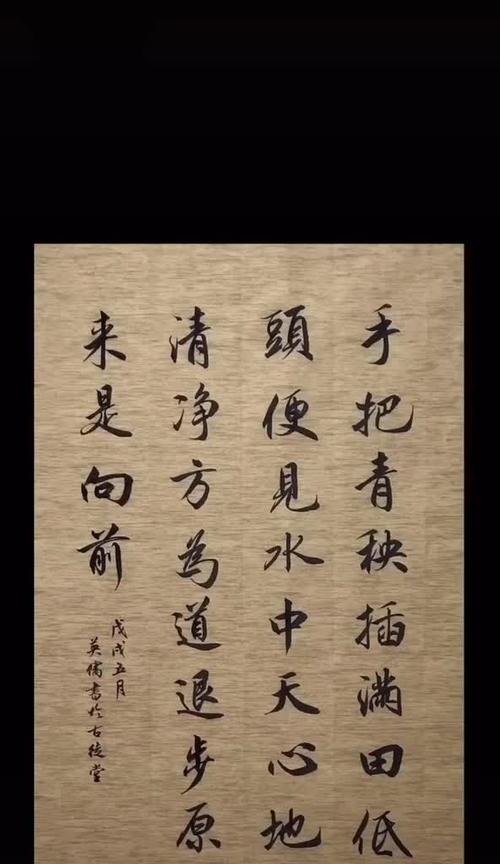 手把青秧插满田低
頭便見水中天心地
清净方為道退步原
来是向前
戊戌五月
英儒書於古徒堂